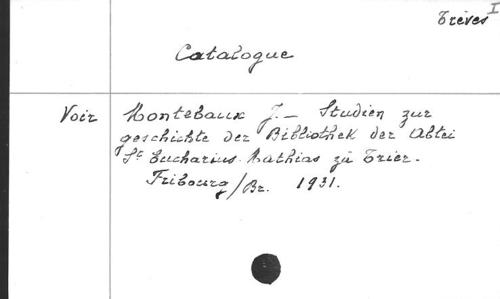 Trèves I
Catalogue
Voir Montebaux J. – Studien zur
geschichte der Bibliothek der Abtei
St Eucharius-Mathias zü Trier.
Fribourg/Br. 1931.